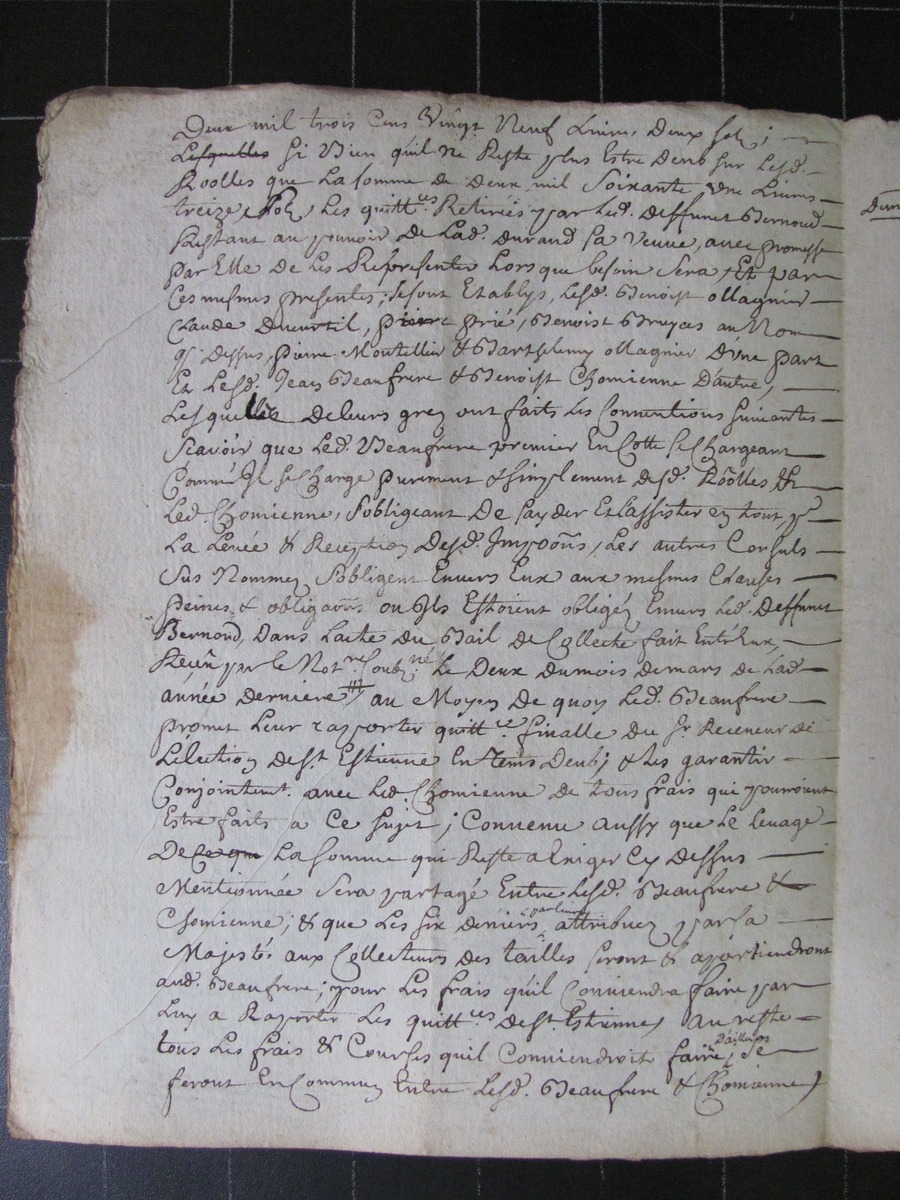 Deux mil trois Cens Vingt Neuf Livres, Deux sols ;
Lesquelles si Bien quil ne Reste plus Estre Deub sur Lesd.
Roolles que La somme de Deux mil Soixante Une Livres
treize sols, Les quitt.ces Retirées par Led. Deffunct Bernoud
Restant au pouvoir De Lad. Durand sa Veuve, avec promesse
par Elle De Les Représenter Lors que besoin Sera, Et par
Ces mesmes presentes ; se sont Establys, Lesd. Benoist Ollagnier
Claude pierre prié, Benoist Bruyas au Nom
q. Dessus, pierre Montellier & Barthelemy Ollagnier D'une part
Et Lesd. Jean Beaufrere & Benoist Chomienne D'autre,
Lesquelles de leurs grez ont faits Les Conventions suivantes
Scavoir que Led. Beaufrere premier En Cotte se Chargeant
Comme Il se Charge purement & simplement desd. Roolles &
Led. Chomienne, s'obligeant De Layder Et L'assister en tout, p.
La Levée & Reception Desd. Impoons, Les autres Consuls
sus Nommez s'obligent Envers Eux aux mesmes Clauses
peines & obligaons ou Ils Estoient obligéz Envers Led. Deffunct
Bernoud, Dans L'acte du Bail de Collecte fait Entr'Eux,
Receu par le Not.re soub.né Le Deux du mois de mars de Lad.
année derniere au Moyen De quoy Led. Beaufrere
promet Leur rapporter quitt.ce finalle Du Sr. Receveur de
L'élection de St. Estienne En tems Deub ; & Les garantir
Conjointemt. avec Led. Chomienne de tous frais qui pourroient
Estre faits a Ce sujet ; Convenu aussy que Le Levage
De ce qui La somme qui Reste a Exiger Cy Dessus
Mentionnée Sera partagé Entre Lesd. Beaufrere &
Chomienne ; & que Les six deniers par livre attribuez par sa
Majesté aux Collecteurs des tailles seront & apartiendront
aud. Beaufrere ; pour Les frais qu'il Conviendra faire par
Luy a Raporter Les quitt.ces de St. Estienne, au reste
tous Les frais & Courses quil Conviendroit faire d'ailleurs, se
feront En Commun Entre Lesd. Beaufrere & Chomienne